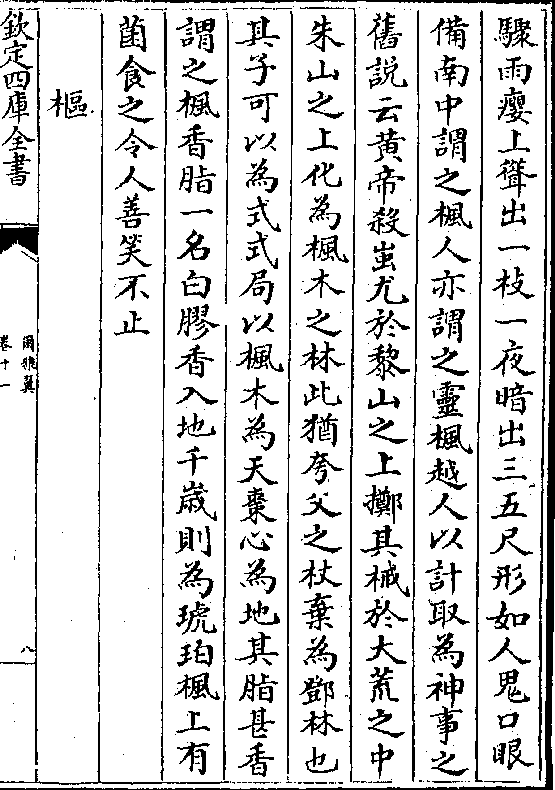 驟雨癭上聳出一枝一夜暗出三五尺形如人鬼口眼
備南中謂之楓人亦謂之靈楓越人以計取為神事之
舊説云黄帝殺蚩尤於黎山之上擲其械於大荒之中
朱山之上化為楓木之林此猶夸父之杖棄為鄧林也
其子可以為式式局以楓木為天棗心為地其脂甚香
謂之楓香脂一名白膠香入地千嵗則為琥珀楓上有
菌食之令人善笑不止
樞
欽定四庫全書
爾雅翼
卷十一
八